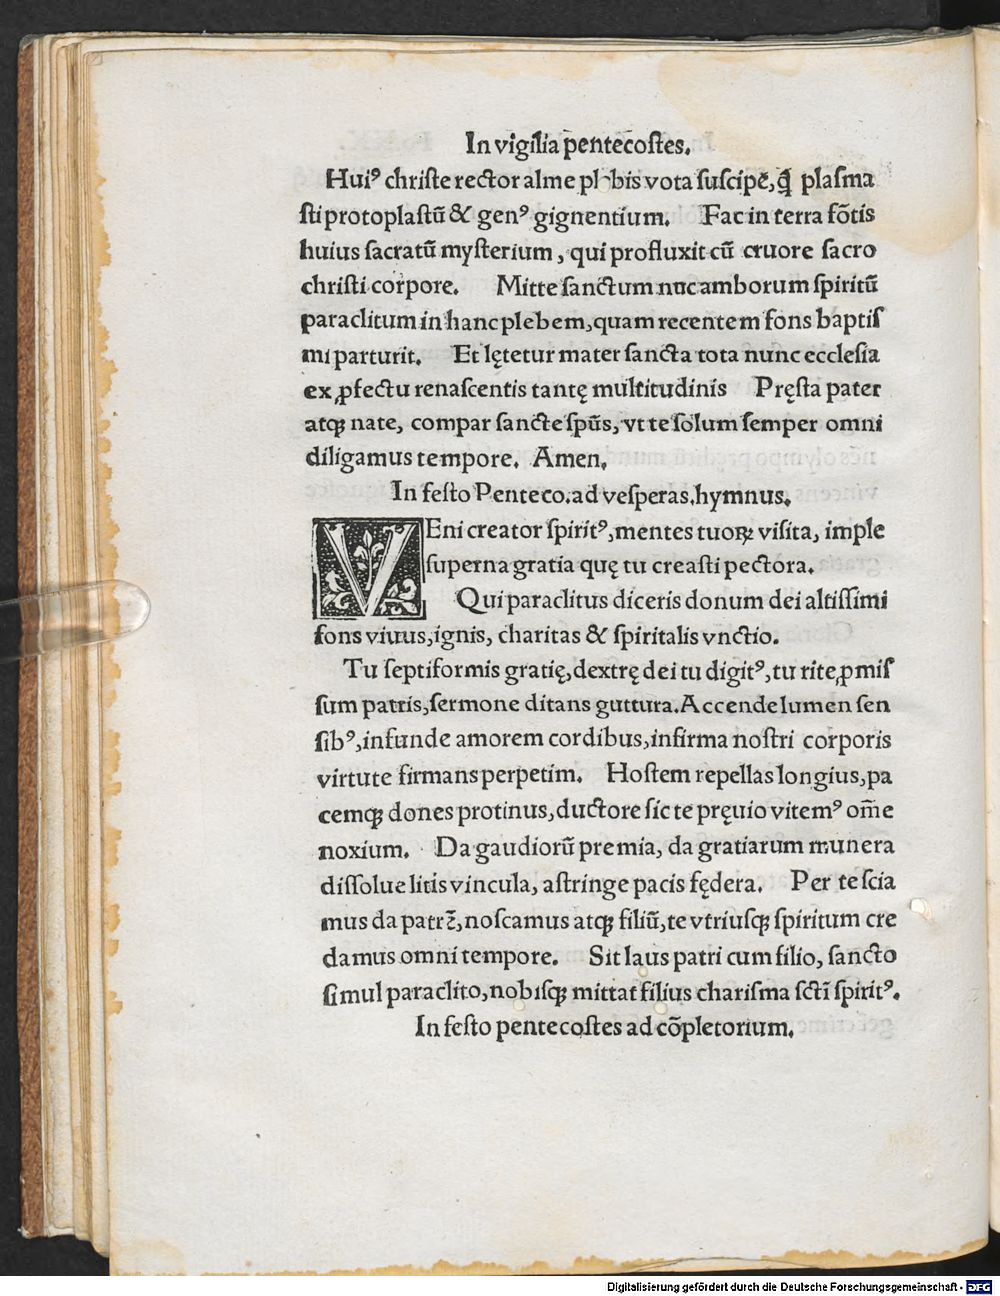 In vigilia pentecostes.
Huiꝰ christe rector alme plebis vota suscipe, ꝗ̃ plasma
sti protoplastũ & genꝰ gignentium. Fac in terra fõtis
huius sacratũ mysterium, qui profluxit cũ cruore sacro
christi corpore. Mitte sanctum nuc amborum spiritũ
paraclitum in hanc plebem, quam recentem fons baptis
mi parturit. Et lętetur mater sancta tota nunc ecclesia
ex ꝓfectu renascentis tantę multitudinis Pręsta pater
atqꝫ nate, compar sancte spũs, vt te solum semper omni
diligamus tempore. Amen.
In festo Penteco. ad vesperas, hymnus.
VEni creator spiritꝰ, mentes tuoꝝ visita, imple
superna gratia quę tu creasti pectora.
Qui paraclitus diceris donum dei altissimi
fons viuus, ignis, charitas & spiritalis vnctio.
Tu septiformis gratię, dextrę dei tu digitꝰ, tu rite ꝓmis
sum patris, sermone ditans guttura. Accende lumen sen
sibꝰ, infunde amorem cordibus, infirma nostri corporis
virtute firmans perpetim. Hostem repellas longius, pa
cemqꝫ dones protinus, ductore sic te pręuio vitemꝰ om̃e
noxium. Da gaudiorũ premia, da gratiarum munera
dissolue litis vincula, astringe pacis fędera. Per te scia
mus da patrẽ, noscamus atqꝫ filiũ, te vtriusqꝫ spiritum cre
damus omni tempore. Sit laus patri cum filio, sancto
simul paraclito, nobisqꝫ mittat filius charisma scti̅ spiritꝰ.
In festo pentecostes ad cõpletorium.
Digitalisierung gefördert durch die Deutsche Forschungsgemeinschaft - DFG